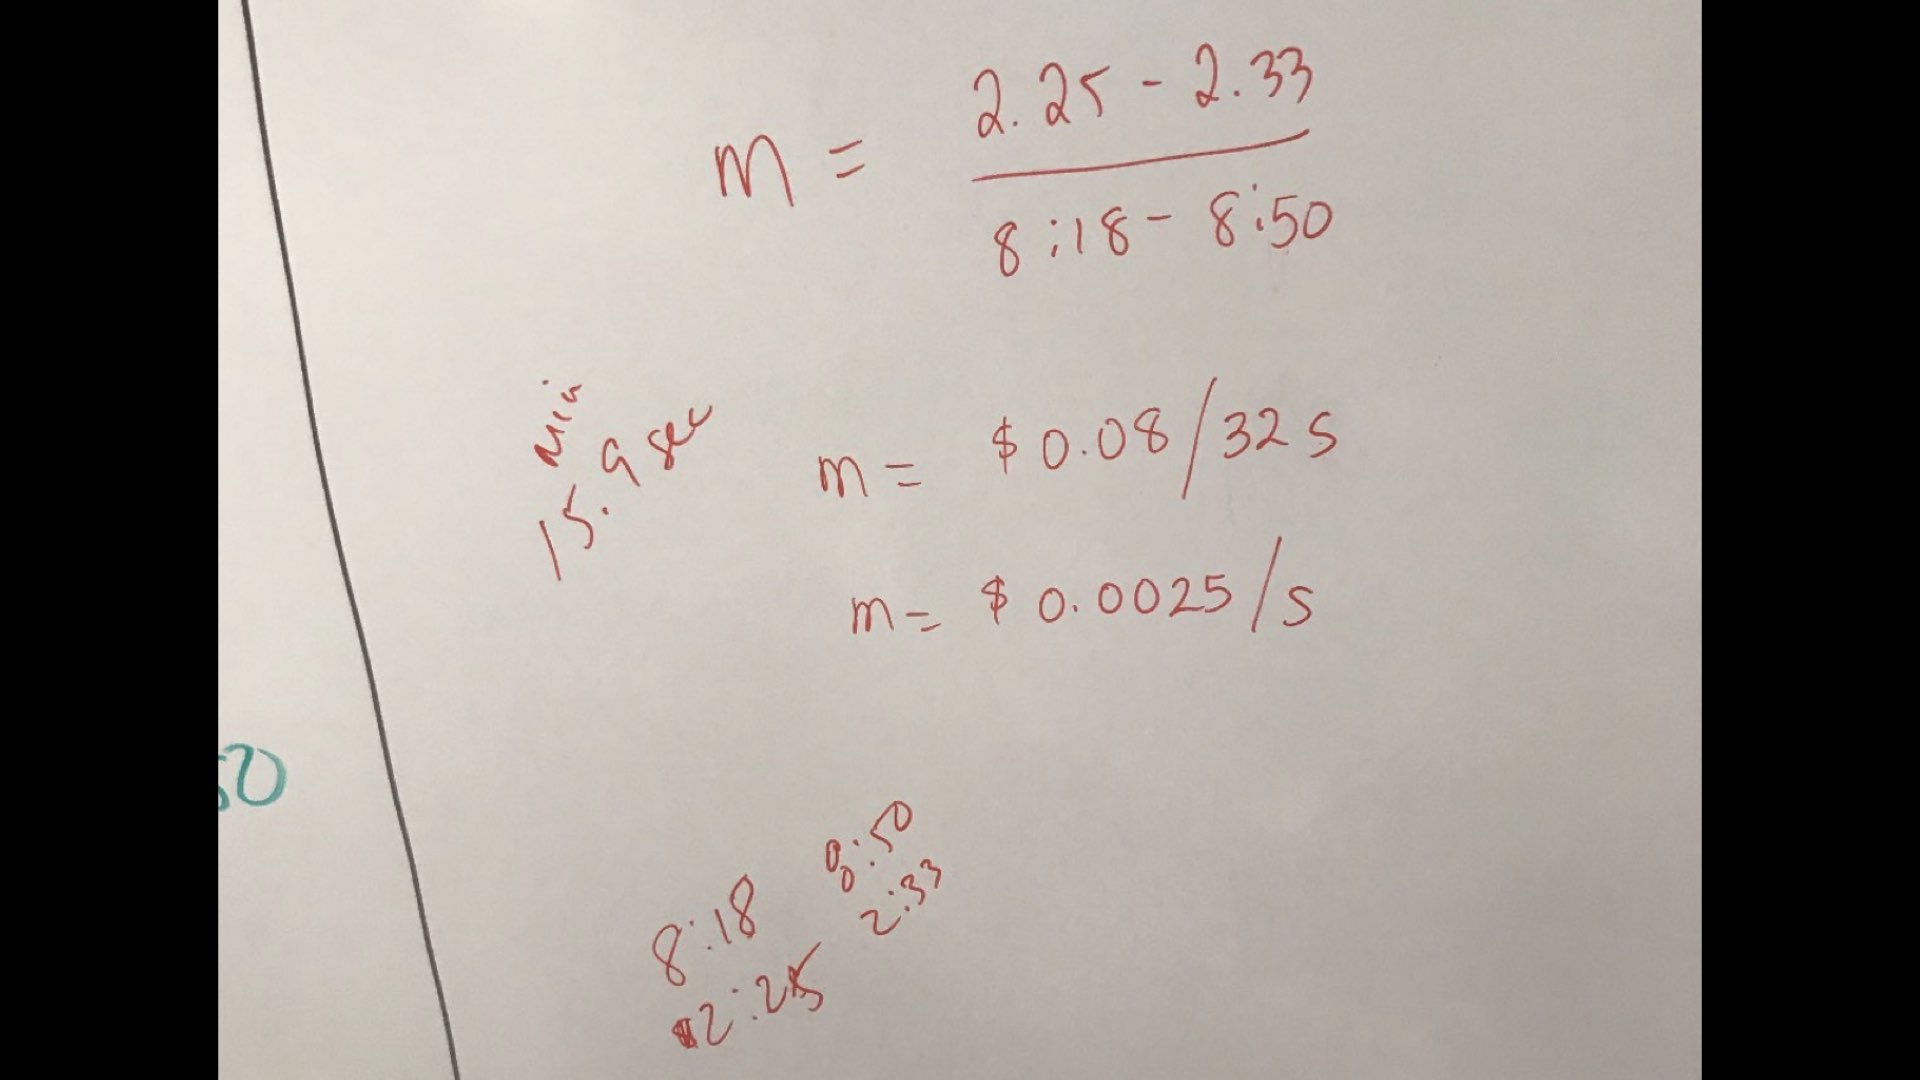 m = 2.25 - 2.33
8:18 - 8:50
Min
15.9 sec
m = $0.08/32s
m = $0.0025/s
50
8:18 8:50
2:25 2:33